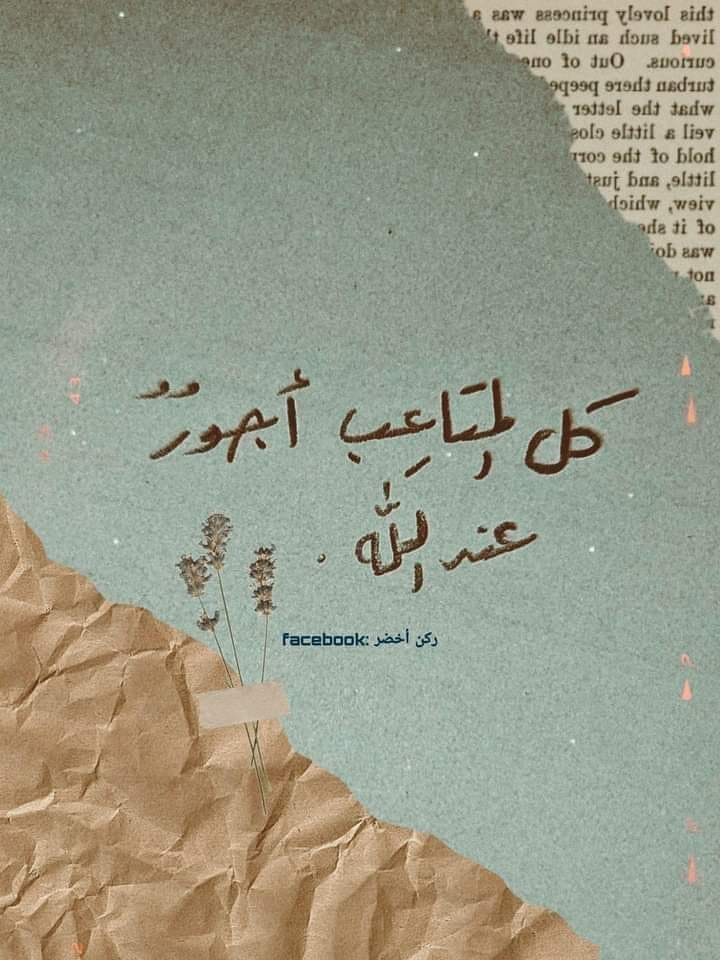 this lovely princess was a
lived such an idle life th
curious. Out of one
turban there peeped
what the letter
veil a little clos
hold of the cor
little, and just
view, which
of it she
was doi
not
كل المتاعب أجورٌ
عند الله .
facebook: ركن أخضر
43